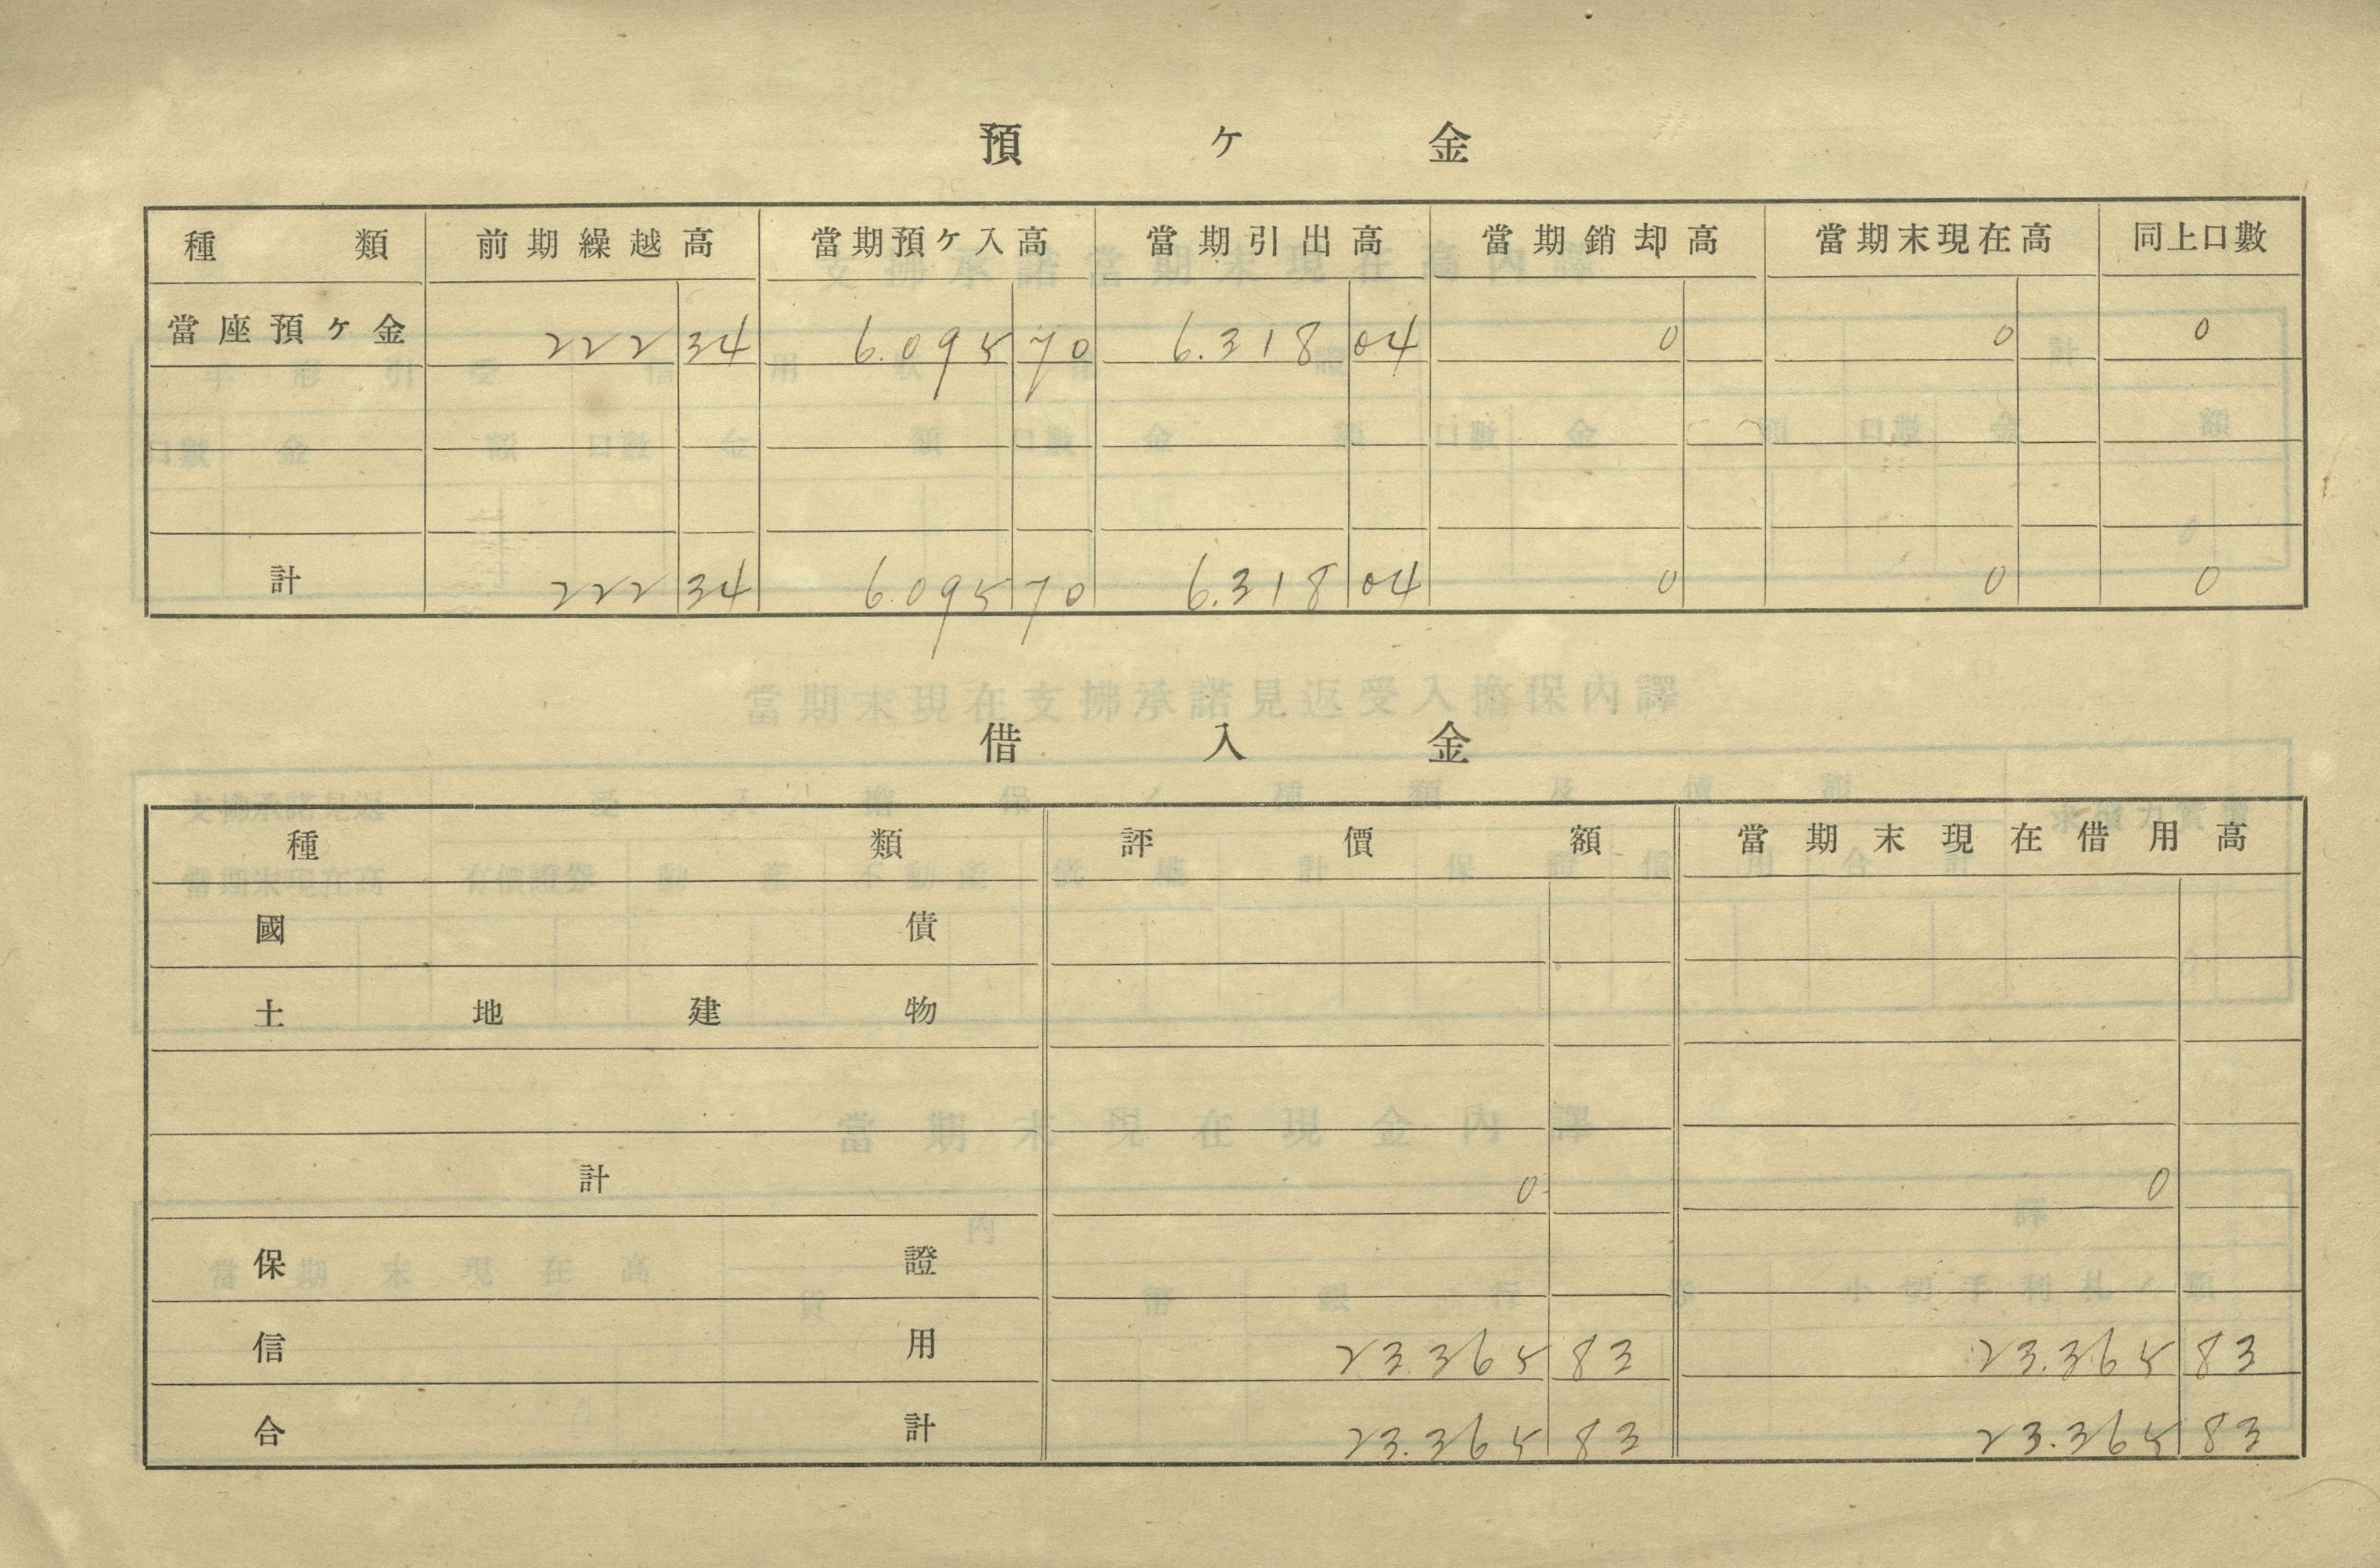 預ケ金
種類 前期繰越高 當期預ケ入高 當期引出高 當期銷却高 當期末現在高 同上口數
當座預ケ金 222 34 6.095 70 6.318 04 0 0 0
計 222 34 6.095 70 6.318 04 0 0 0
當期末現在支拂承諾見返受入擔保內譯
借入金
種類 評價額 當期末現在借用高
國債
土地建物
當期末現在現金內譯
計 0 0
保證
信用 23.365 83 23.365 83
合計 23.365 83 23.365 83